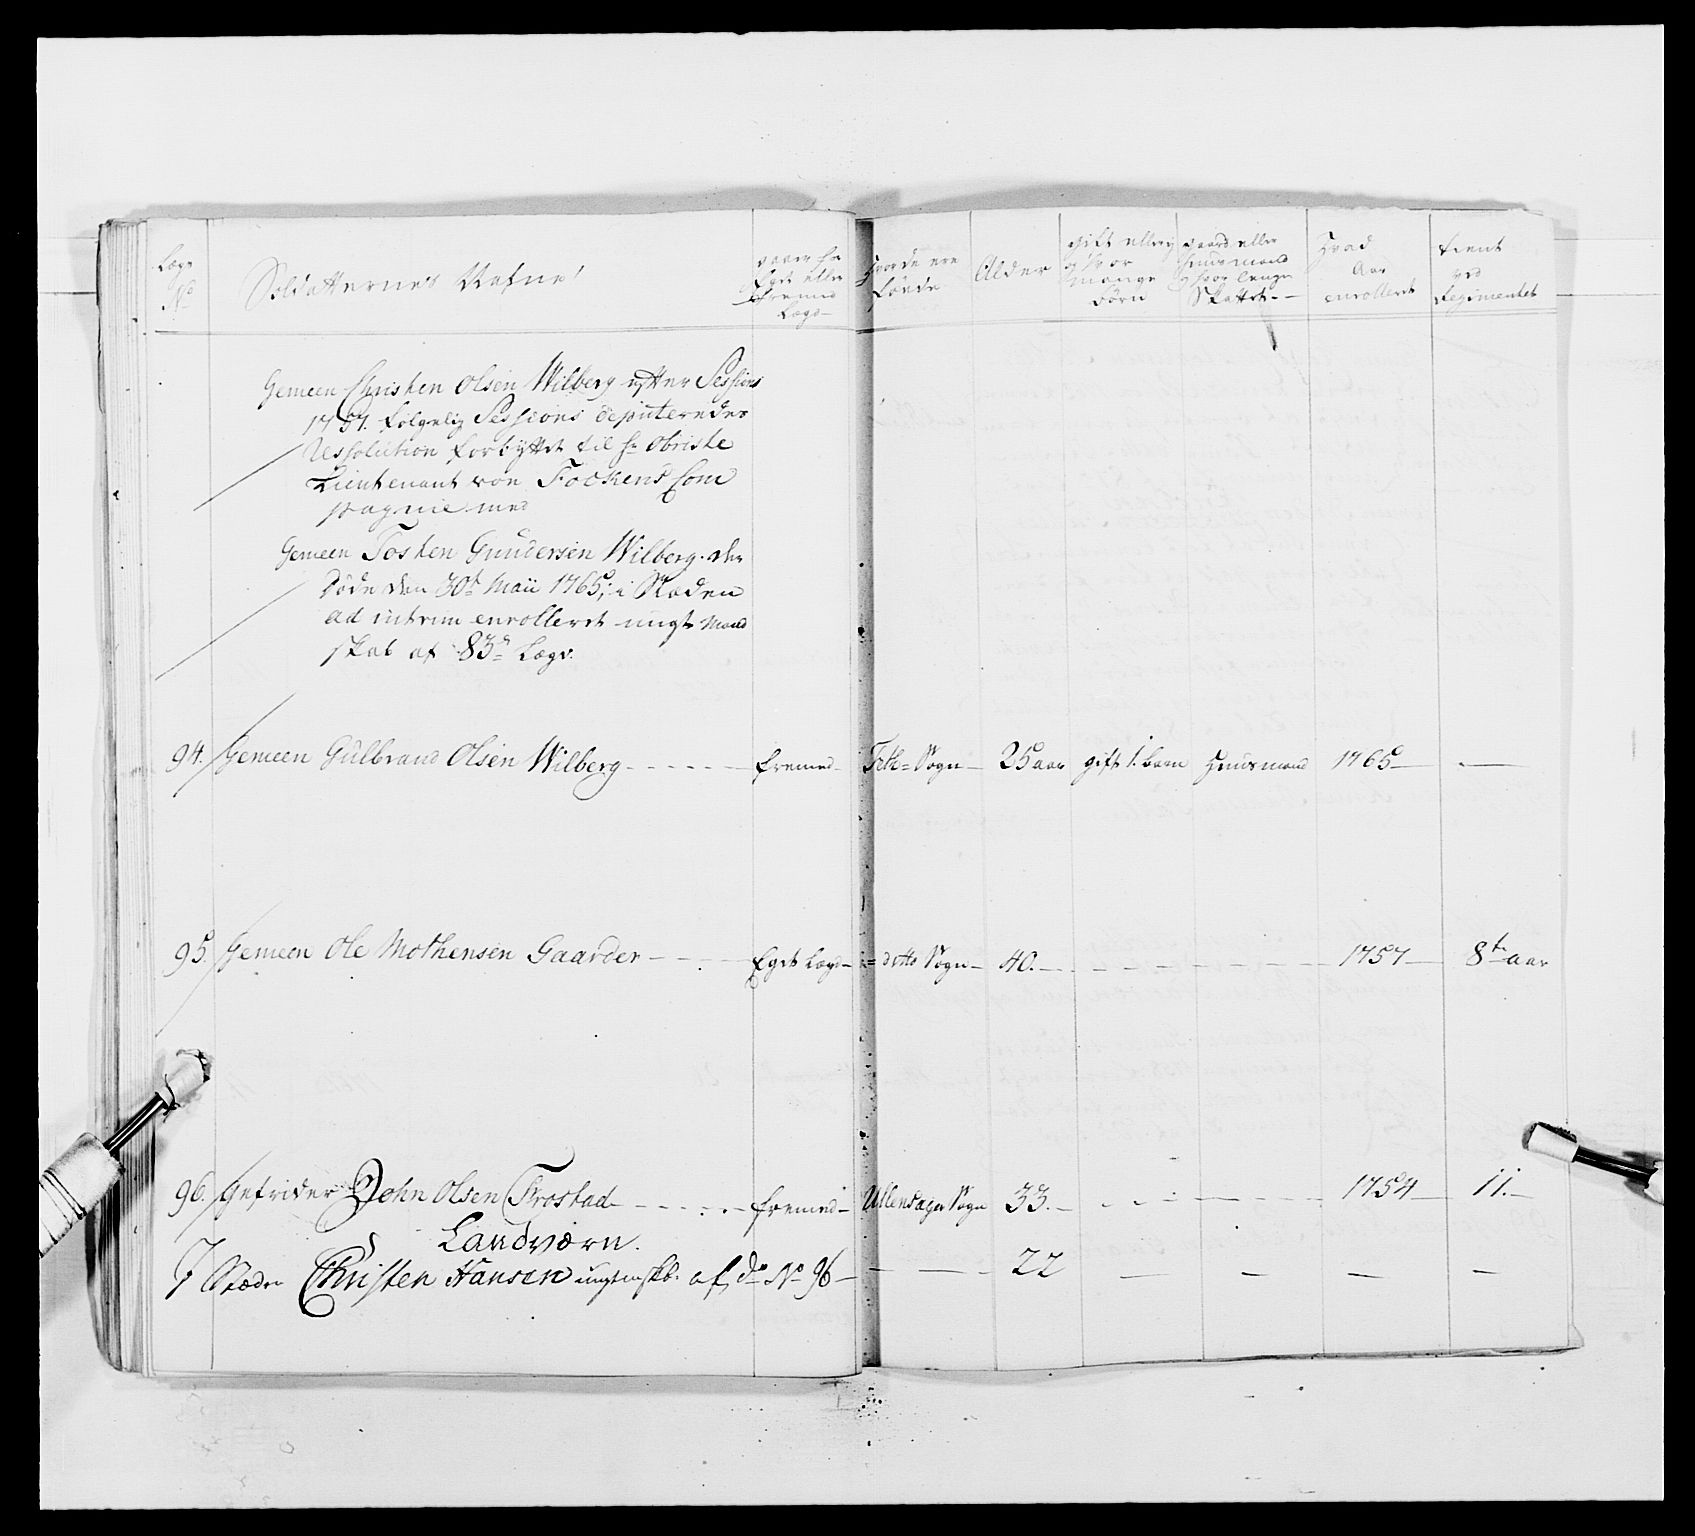 Lægs No
Soldatternes Nafne
waaer for Eget eller fremed Lægd
Hvor de ere födde
Alder
gift eller ey og hvor mange börn
gaard eller huusmand hvor lenge Skattet
Hvad Aar enrolleret
tient ved Regimentet
Gemeen Christen Olsen Wilberg efter Sessions
1757. følgelig Sessions deputeredes
Resolution forbyttet til hr. Obriste
Lieutenant von Fockens Com
pagnie med
Gemeen Tosten Gundersen Wilberg. der
döde den 30t Maii 1765; i Stæden
ad intrim enrolleret ungt Mand
skab af 83de Lægd.
94. Gemeen Gulbrand Olsen Wilberg - - - - - - fremed - Feth = Sogn - 25 aar gift 1. barn Huusmand 1765 - -
95. Gemeen Ole Mothensen Gaarder - - - - Eget Lægd - = ditto Sogn - 40. - - - - - - 1757 - 8te aar
96. Gefrider John Olsen Frostad - - - - - - fremed - Ullensager Sogn 33. - - - - - - 1754 - 11. -
Landværn.
7 Stæden Christen Hansen ungt mskb. af do No 96 - - - - 22 - - - -